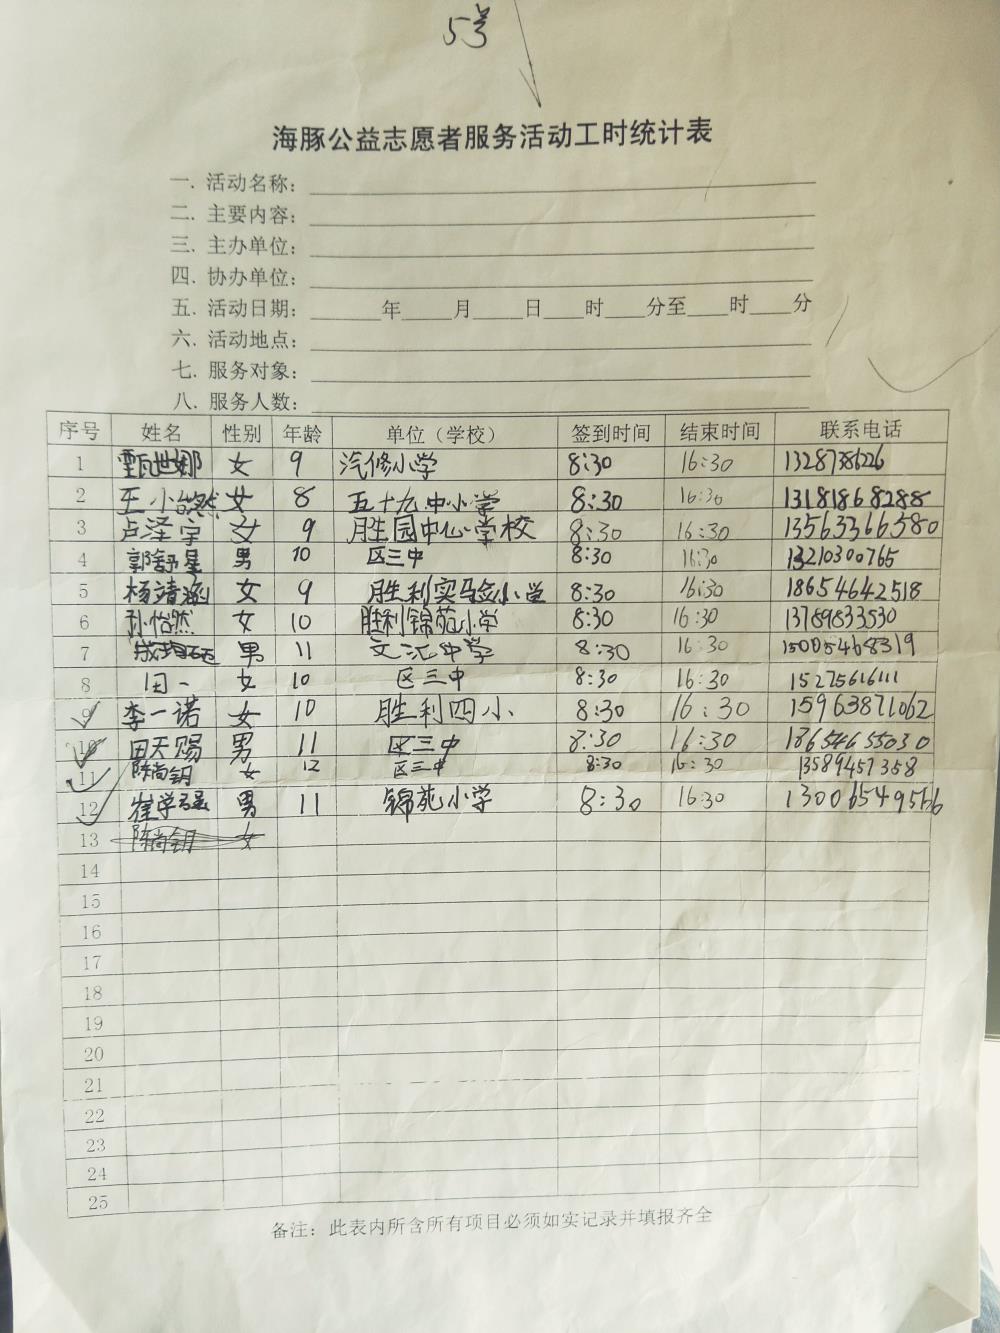 5号
海豚公益志愿者服务活动工时统计表
一. 活动名称：
二. 主要内容：
三. 主办单位：
四. 协办单位：
五. 活动日期： 年 月 日 时 分至 时 分
六. 活动地点：
七. 服务对象：
八. 服务人数：
序号 姓名 性别 年龄 单位（学校） 签到时间 结束时间 联系电话
1 甄世娜 女 9 汽修小学 8:30 16:30 13287386226
2 王小皓然 女 8 五十九中小学 8:30 16:30 13181868288
3 卢泽宇 女 9 胜园中心学校 8:30 16:30 13563366580
4 郭舒星 男 10 区三中 8:30 16:30 13210300765
5 杨靖涵 女 9 胜利实验小学 8:30 16:30 18654642518
6 孙怡然 女 10 胜利锦苑小学 8:30 16:30 13789833530
7 男 11 文汇中学 8:30 16:30 15005468319
8 田一 女 10 区三中 8:30 16:30 15275616111
9 李一诺 女 10 胜利四小 8:30 16:30 15963871062
10 田天赐 男 11 区三中 8:30 16:30 18654655030
11 陈尚钥 女 12 区三中 8:30 16:30 13589457358
12 崔学磊 男 11 锦苑小学 8:30 16:30 13006549566
13 陈尚钥 女
14
15
16
17
18
19
20
21
22
23
24
25
备注：此表内所含所有项目必须如实记录并填报齐全